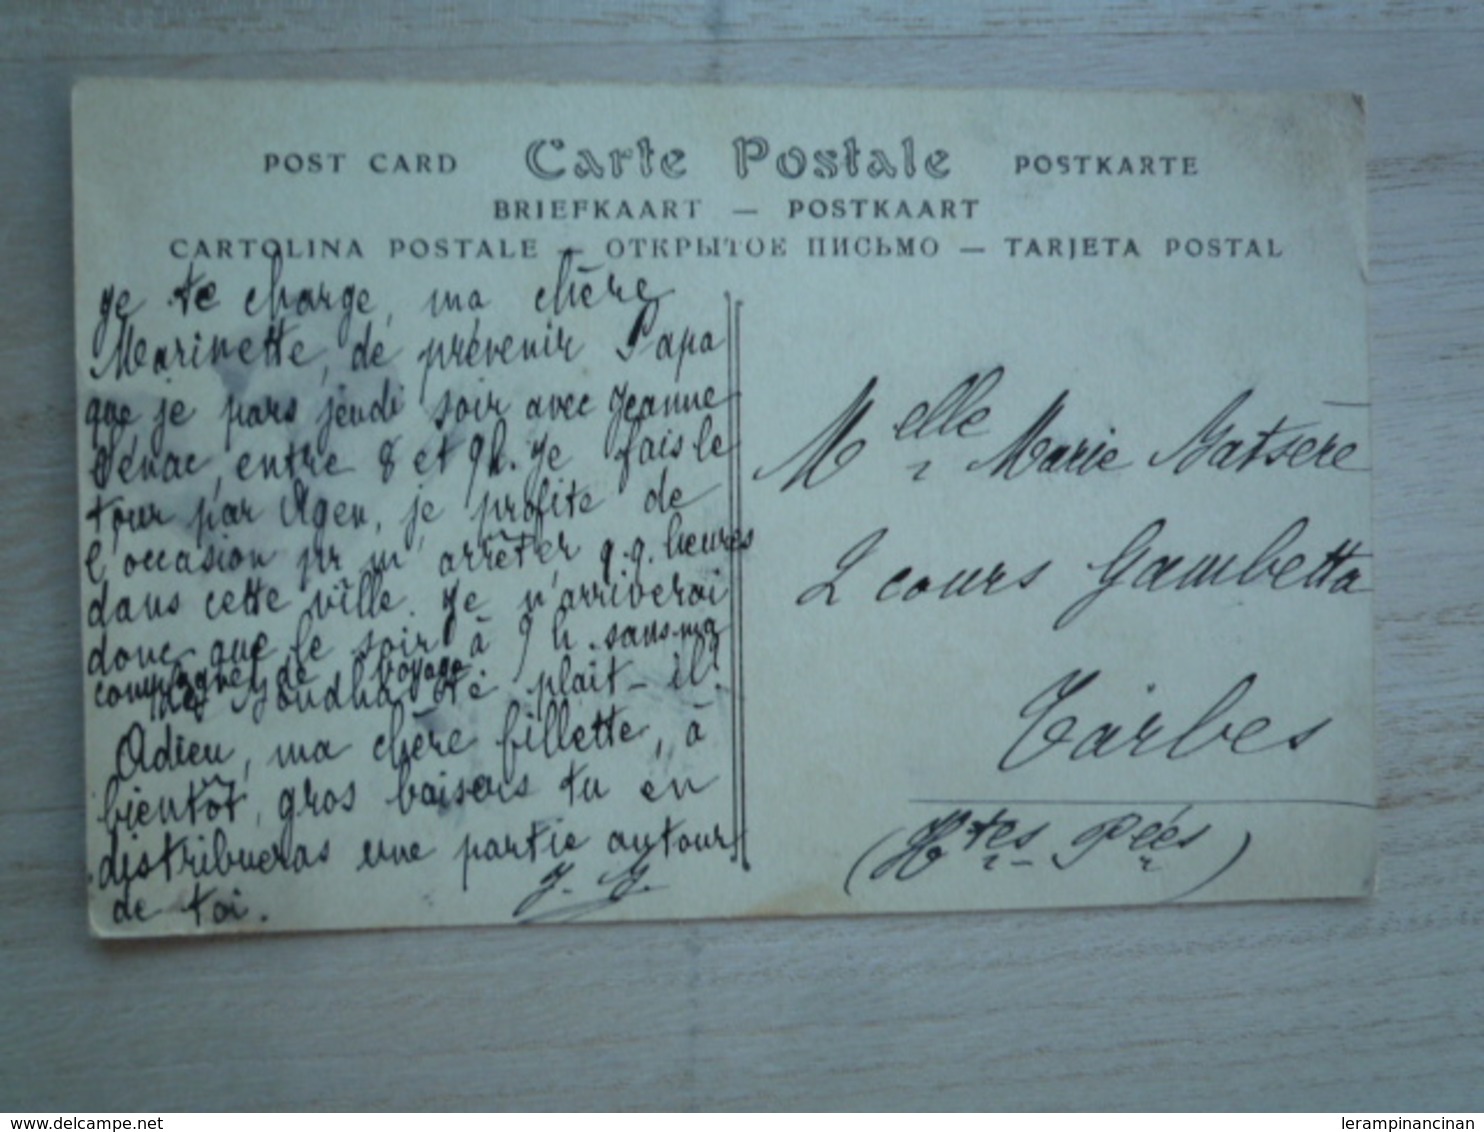 POST CARD Carte Postale POSTKARTE
BRIEFKAART — POSTKAART
CARTOLINA POSTALE — ОТКРЫТОЕ ПИСЬМО — TARJETA POSTAL
Je te charge, ma chère
Marinette, de prévenir Papa
que je pars jeudi soir avec Jeanne
Sénac, entre 8 et 9h. Je fais le
tour par Agen, je profite de
l'occasion pr m'arrêter q.q. heures
dans cette ville. Je n'arriverai
donc que le soir à 9 h. sans ma
compagne de voyage
plait-il?
Adieu, ma chère fillette, à
bientôt, gros baisers tu en
distribueras une partie autour
de toi. J. G.
Melle Marie Gatsère
2 cours Gambetta
Tarbes
(Htes Pées)
delcampe.net
lerampinancinan